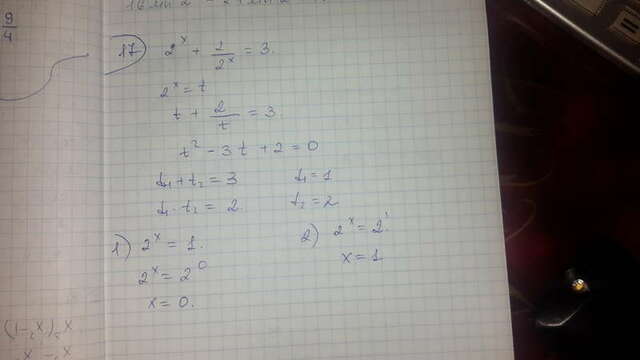 9
4
17) 2^x + 2/2^x = 3.
2^x = t
t + 2/t = 3.
t² - 3t + 2 = 0
t₁ + t₂ = 3 t₁ = 1
t₁ · t₂ = 2. t₂ = 2
1) 2^x = 1. 2) 2^x = 2¹.
2^x = 2^0 x = 1
x = 0.